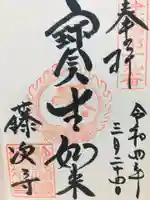 奉拝
令和四年
三月二十
寶生如来
藤次寺